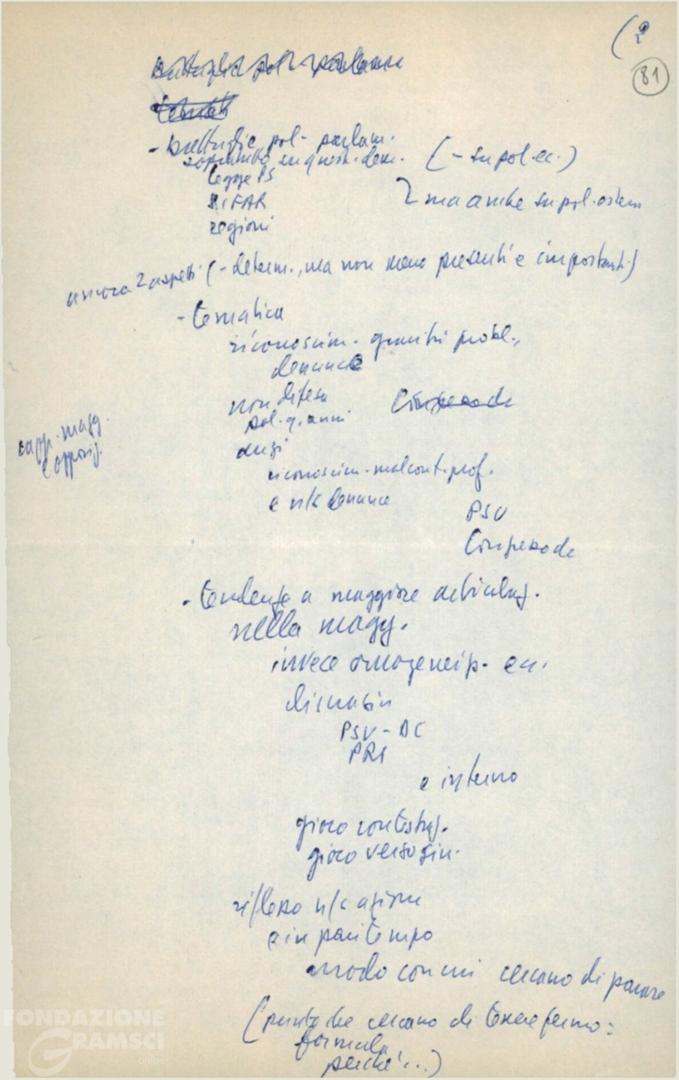 (2
81
Battaglia pol. parlam
- battaglia pol. parlam.
soprattutto su quest. dem. (- su pol. ec.)
legge PS
SIFAR
regioni
ma anche su pol. estera
ancora 2 aspetti (- determ., ma non meno presenti e importanti)
- tematica
riconoscim. gravità probl.,
denunce
non difesa
pol. q. anni
anzi
riconoscim. malcont. prof.
e ns/ denunce
PSU
Congresso dc
rapp. magg.
e opposiz.
- tendenza a maggiore articolaz.
nella magg.
invece omogeneizz. ecc.
PSU - DC
PRI
e interno
gioco contestaz.
gioco verso sin.
riflesso ns/ azione
e in pari tempo
modo con cui cercano di parare
(punto che cercano di tenere fermo:
formula
perché...)
FONDAZIONE
GRAMSCI